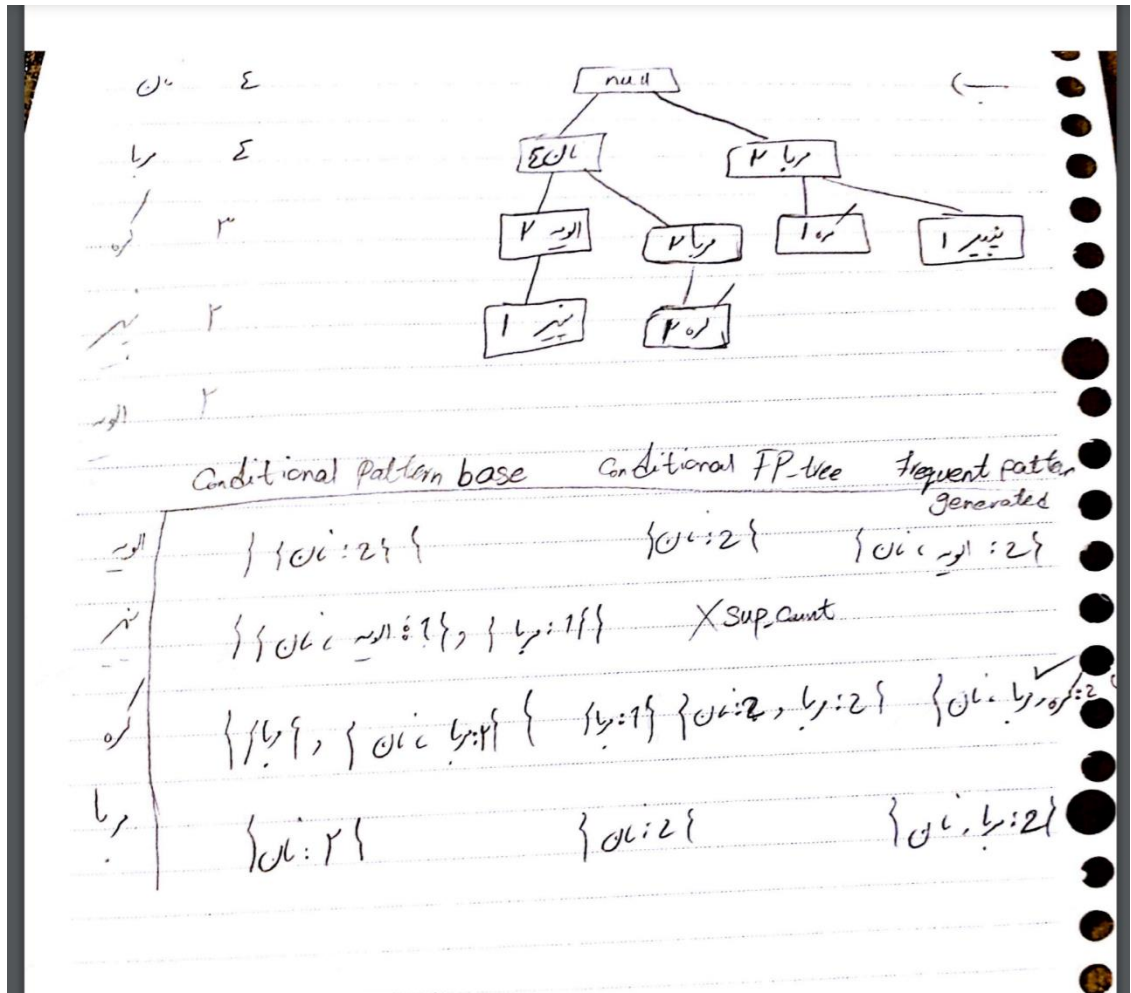 ب)
null
نان ٤
مربا ٤
کره ۳
پنیر ۲
الویه ۲
نان ٤
مربا ۲
الویه ۲
مربا ۲
کره ۱
پنیر ۱
پنیر ۱
کره ۲
Conditional Pattern base Conditional FP-tree frequent patter
generated
الویه {{نان:2}} {نان:2} {نان، الویه:2}
پنیر {{نان، الویه:1}, {مربا:1}} X sup_count
کره {{مربا}, {نان، مربا:۲}} {مربا:1} {نان:2, مربا:2} {نان، مربا, کره:2}
مربا {نان:۲} {نان:2} {نان, مربا:2}